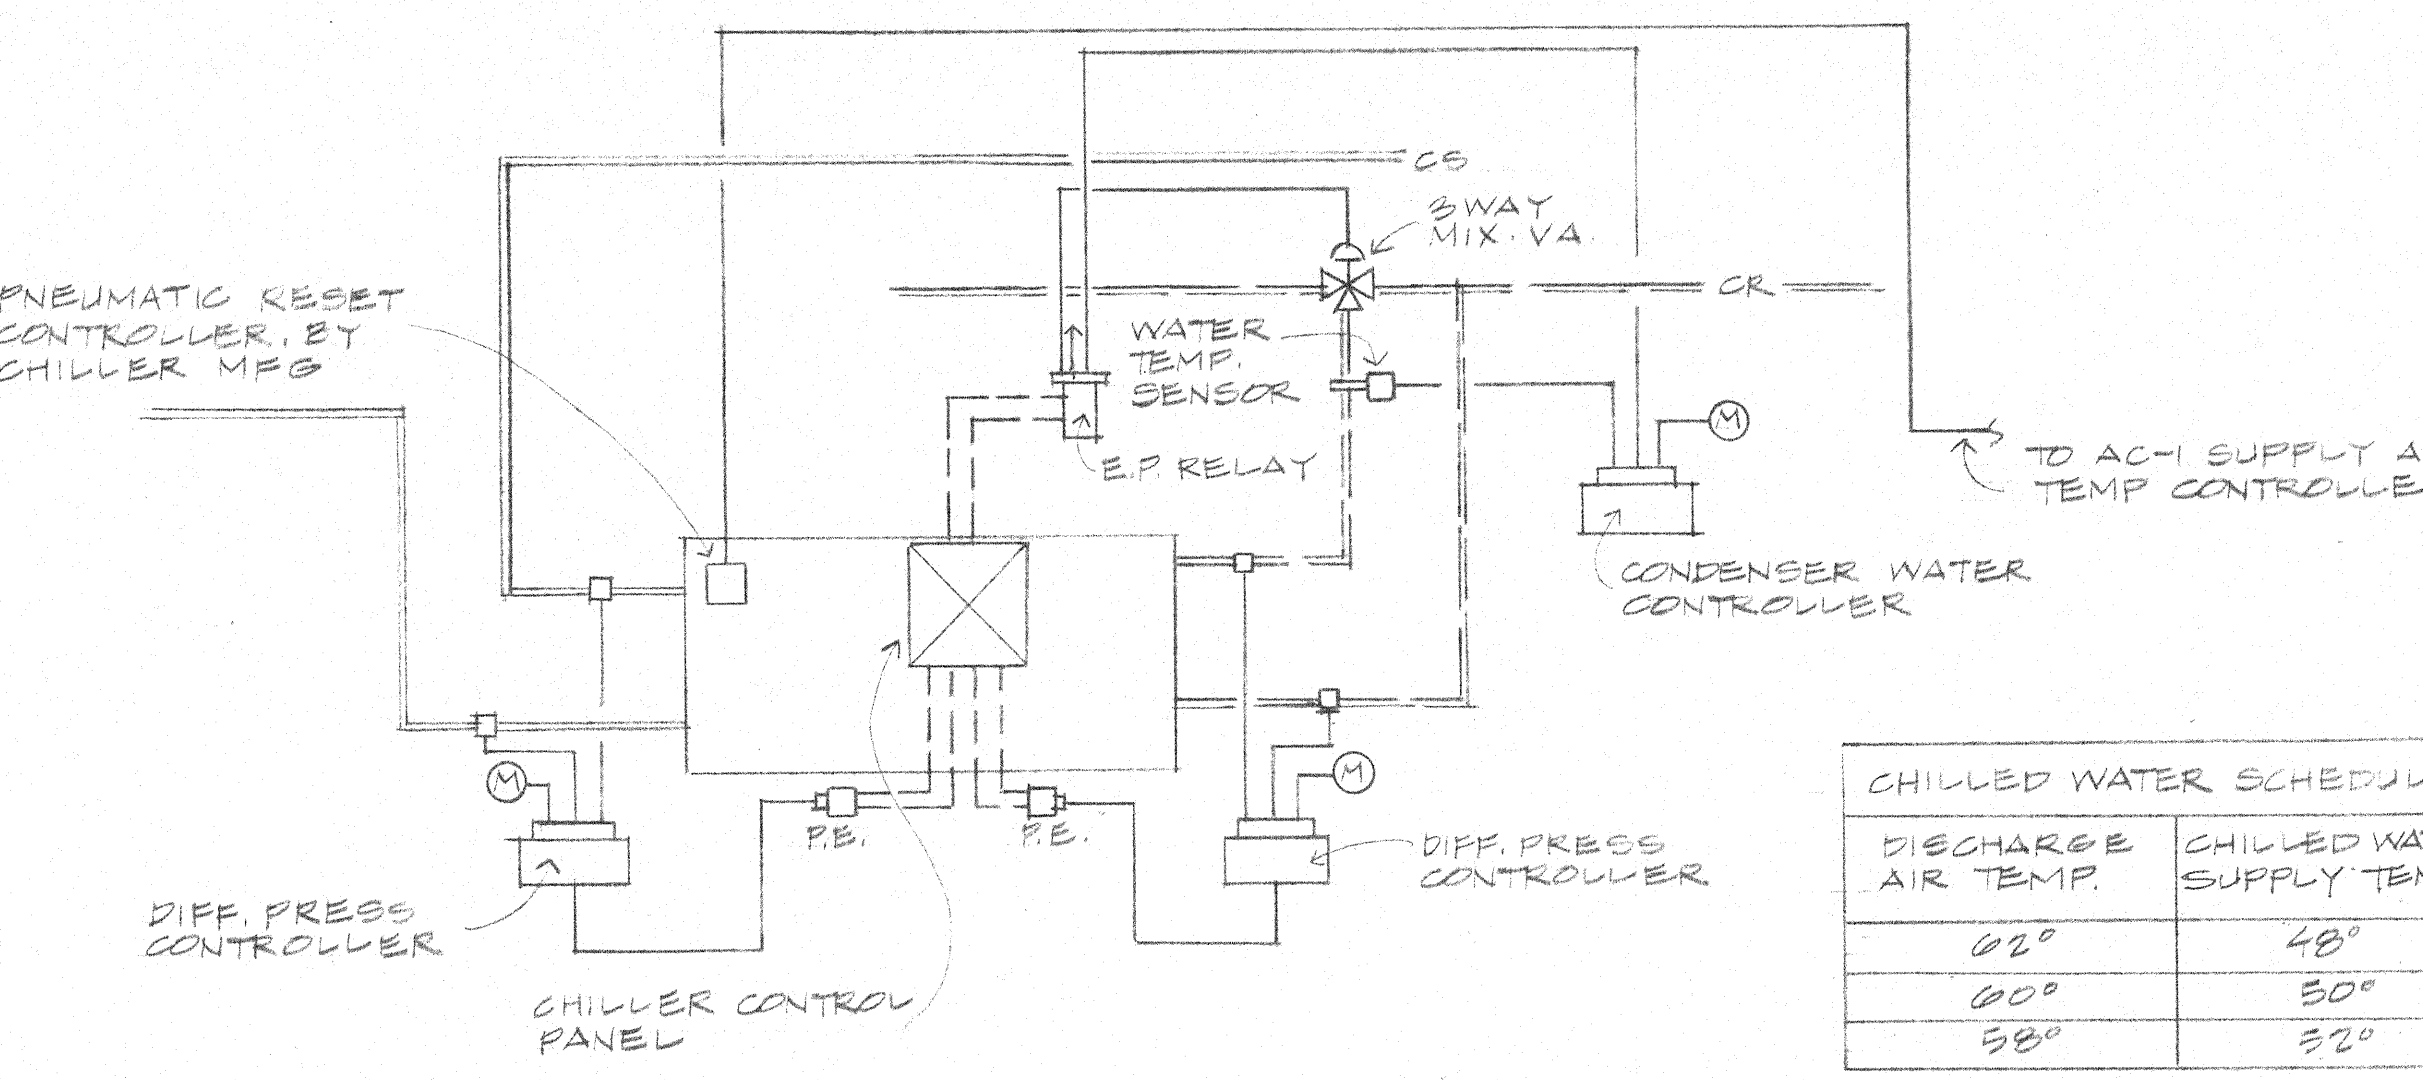 CS
3 WAY
MIX. VA.
CR
PNEUMATIC RESET
CONTROLLER. BY
CHILLER MFG
WATER
TEMP.
SENSOR
M
E.P. RELAY
TO AC-1 SUPPLY A
TEMP CONTROLLE
CONDENSER WATER
CONTROLLER
M
M
P.E.
P.E.
DIFF. PRESS
CONTROLLER
DIFF. PRESS
CONTROLLER
CHILLER CONTROL
PANEL
CHILLED WATER SCHEDUL
DISCHARGE
AIR TEMP.
CHILLED WA
SUPPLY TEM
62° 48°
60° 50°
58° 52°